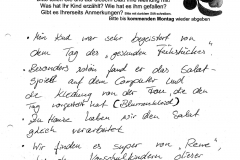 Was hat Ihr Kind erzählt? Wie hat es ihm gefallen?
Gibt es Ihrerseits Anmerkungen?
Bitte bis kommenden Montag wieder abgeben
• Mein Kind war sehr begeistert von
dem Tag des "gesunden Frühstückes".
• Besonders schön fand er das Salat
Spiel auf dem Computer und
die Kleidung von der Frau, die den
Tag vorgestellt hat (Blumenkleid)
• Zu Hause haben wir den Salat
gleich verarbeitet
• Wir finden es super von "Rewe",
dieser